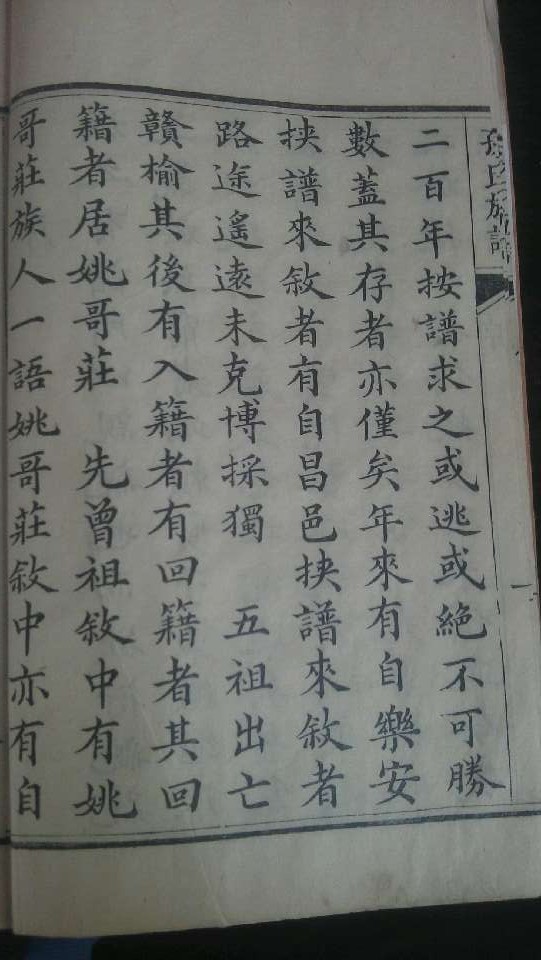 孫氏族譜
二百年按譜求之或逃或絶不可勝
數蓋其存者亦僅矣年來有自樂安
挾譜來敘者有自昌邑挾譜來敘者
路途遙遠未克博採獨 五祖出亡
贛榆其後有入籍者有回籍者其回
籍者居姚哥莊 先曾祖敘中有姚
哥莊族人一語姚哥莊敘中亦有自